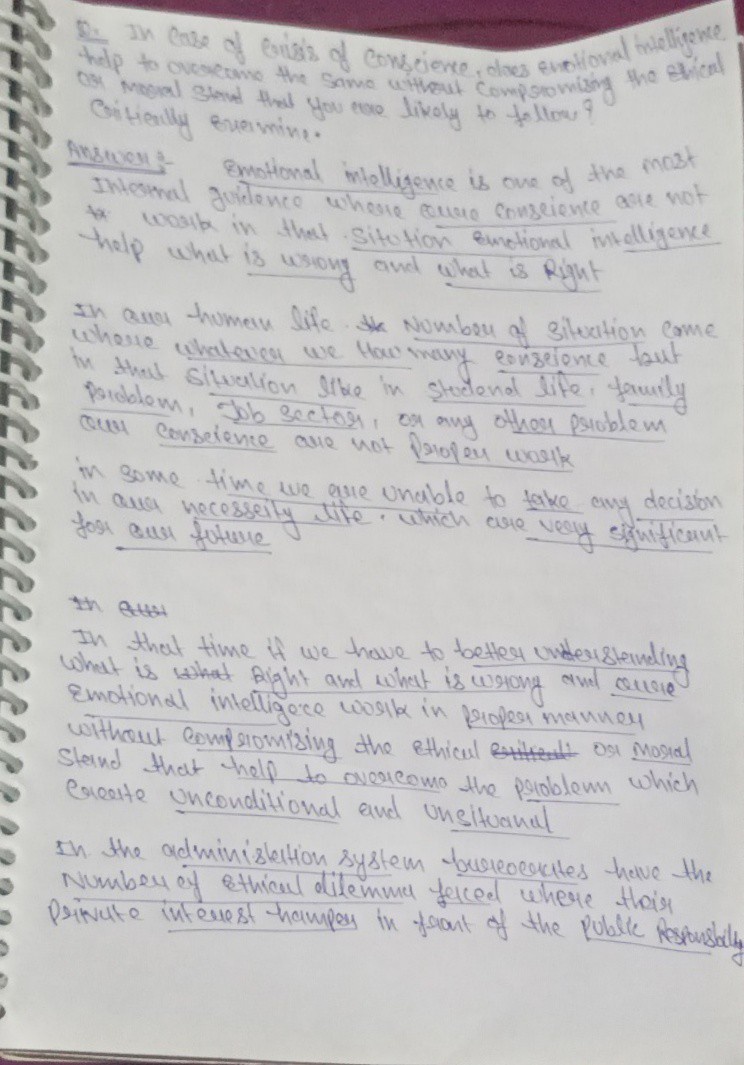 Q: In case of crisis of conscience, does emotional intelligence
help to overcome the same without compromising the ethical
or moral stand that you are likely to follow?
Critically examine.
Answer:- Emotional intelligence is one of the most
Internal guidence where ouer conscience are not
work in that Sitution emotional intelligence
help what is wrong and what is Right
In ouer human life Number of situation come
where whatever we How many conscience but
in that situation like in studend life, family
problem, Job sector, or any other problem
ouer conscience are not Proper work
in some time we are unable to take any decision
in ouer necesseity life. which are very significant
for our future
In ouer
In that time if we have to better understanding
what is what Right and what is wrong and ouere
Emotional intelligece work in proper manner
without compromising the ethical or moral
Stand that help to overcome the problem which
Create unconditional and unsituanal
In the administration system bureocrates have the
Number of ethical dilemma feaced where their
private interest hamper in front of the public Responsbility